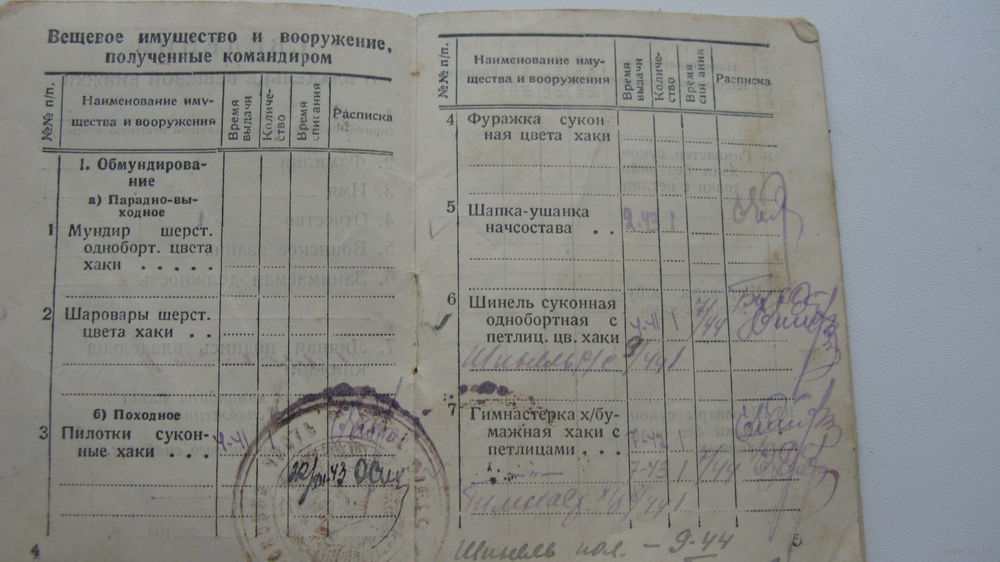 Вещевое имущество и вооружение,
полученные командиром
№№ п/п.
Наименование иму-
щества и вооружения
Время
выдачи
Количе-
ство
Время
списания
Расписка
1. Обмундирова-
ние
а) Парадно-вы-
ходное
1 Мундир шерст.
одноборт. цвета
хаки . . . . .
2 Шаровары шерст.
цвета хаки . .
б) Походное
3 Пилотки сукон-
ные хаки . . . 4-41 1
4
№№ п/п.
Наименование иму-
щества и вооружения
Время
выдачи
Количе-
ство
Время
списания
Расписка
4 Фуражка сукон-
ная цвета хаки
5 Шапка-ушанка
начсостава . . 2-43 1
6 Шинель суконная
однобортная с
петлиц. цв. хаки 4-41 1 7/44
Шинель с/с 9/44 1
7 Гимнастерка х/бу-
мажная хаки с
петлицами . . . 7-43 1
7-43 1 7/44
Шинель пол. - 9-44
5